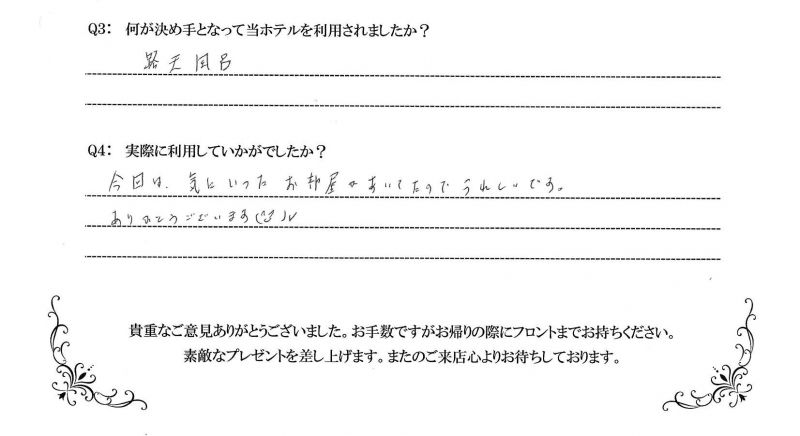 Q3: 何が決め手となって当ホテルを利用されましたか?
露天風呂
Q4: 実際に利用していかがでしたか?
今回は、気にいったお部屋があいてたのでうれしいです。
ありがとうございます(^^)v
貴重なご意見ありがとうございました。お手数ですがお帰りの際にフロントまでお持ちください。
素敵なプレゼントを差し上げます。またのご来店心よりお待ちしております。